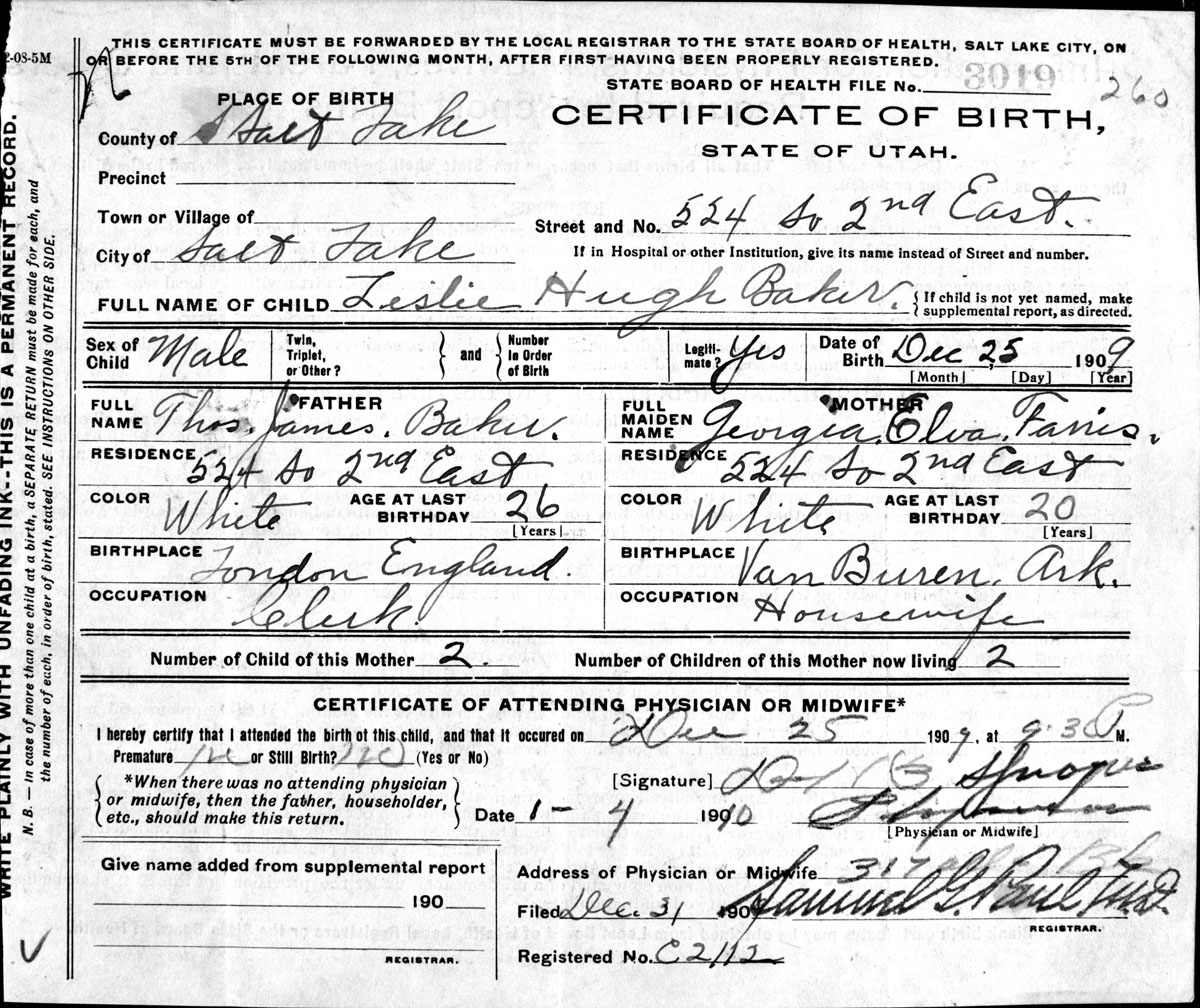 2-08-5M
THIS CERTIFICATE MUST BE FORWARDED BY THE LOCAL REGISTRAR TO THE STATE BOARD OF HEALTH, SALT LAKE CITY, ON
OR BEFORE THE 5TH OF THE FOLLOWING MONTH, AFTER FIRST HAVING BEEN PROPERLY REGISTERED.
STATE BOARD OF HEALTH FILE No. 3019
260
PLACE OF BIRTH
CERTIFICATE OF BIRTH,
County of Salt Lake
STATE OF UTAH.
Precinct
Town or Village of
Street and No. 524 So 2nd East.
City of Salt Lake
If in Hospital or other Institution, give its name instead of Street and number.
FULL NAME OF CHILD Leslie Hugh Baker. { If child is not yet named, make
supplemental report, as directed.
Sex of Child Male Twin, Triplet, or Other? } and { Number In Order of Birth Legiti-mate? Yes Date of Birth Dec 25 1909
[Month] [Day] [Year]
FATHER
FULL NAME Thos. James. Baker.
RESIDENCE 524 So 2nd East
COLOR White AGE AT LAST BIRTHDAY 26
[Years]
BIRTHPLACE London England.
OCCUPATION Clerk.
MOTHER
FULL MAIDEN NAME Georgia. Elva. Farris.
RESIDENCE 524 So 2nd East
COLOR White AGE AT LAST BIRTHDAY 20
[Years]
BIRTHPLACE Van Buren, Ark.
OCCUPATION Housewife
Number of Child of this Mother 2. Number of Children of this Mother now living 2
CERTIFICATE OF ATTENDING PHYSICIAN OR MIDWIFE*
I hereby certify that I attended the birth of this child, and that it occured on Dec 25 1909, at 9:30 P M.
Premature no or Still Birth? no (Yes or No)
*When there was no attending physician
or midwife, then the father, householder,
etc., should make this return.
[Signature]
Date 1 - 4 1910
[Physician or Midwife]
Give name added from supplemental report
190
REGISTRAR.
Address of Physician or Midwife 317
Filed Dec. 31 1909 Samuel G. Paul M.D.
REGISTRAR.
Registered No. C2112
WRITE PLAINLY WITH UNFADING INK--THIS IS A PERMANENT RECORD.
N. B. — In case of more than one child at a birth, a SEPARATE RETURN must be made for each, and
the number of each, in order of birth, stated. SEE INSTRUCTIONS ON OTHER SIDE.